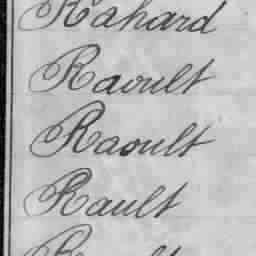 Rahard
Raoult
Raoult
Rault